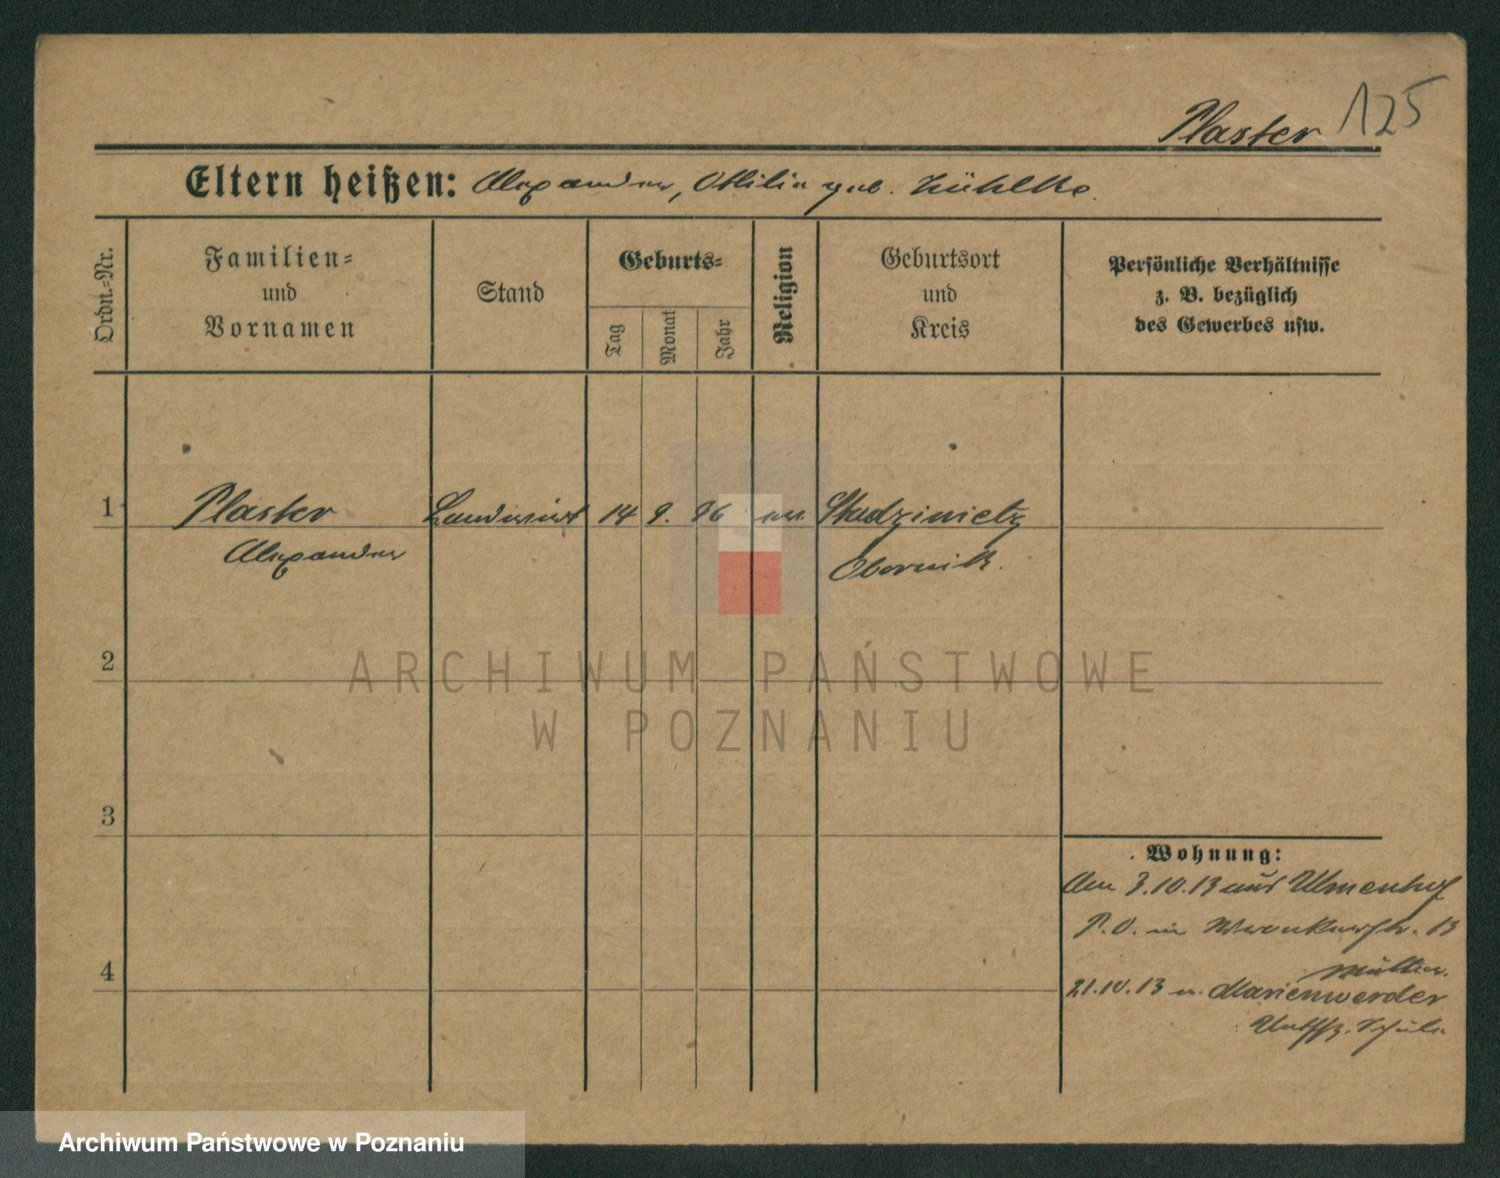 Plaster 125
Eltern heißen: Alexander, Ottilie geb. Zühlke.
Ordn.-Nr.
Familien-
und
Vornamen
Stand
Geburts-
Tag
Monat
Jahr
Religion
Geburtsort
und
Kreis
Persönliche Verhältnisse
z. B. bezüglich
des Gewerbes usw.
1 Plaster Landwirt 14 9. 96 ev. Studzinietz
Alexander Obornik.
2
3
4
Wohnung:
Am 3.10.13 aus Ulmenhof
P. O. in Wronkerstr. 13
Müller.
21.10.13 n. Marienwerder
Unffz. Schule
ARCHIWUM PAŃSTWOWE
W POZNANIU
Archiwum Państwowe w Poznaniu